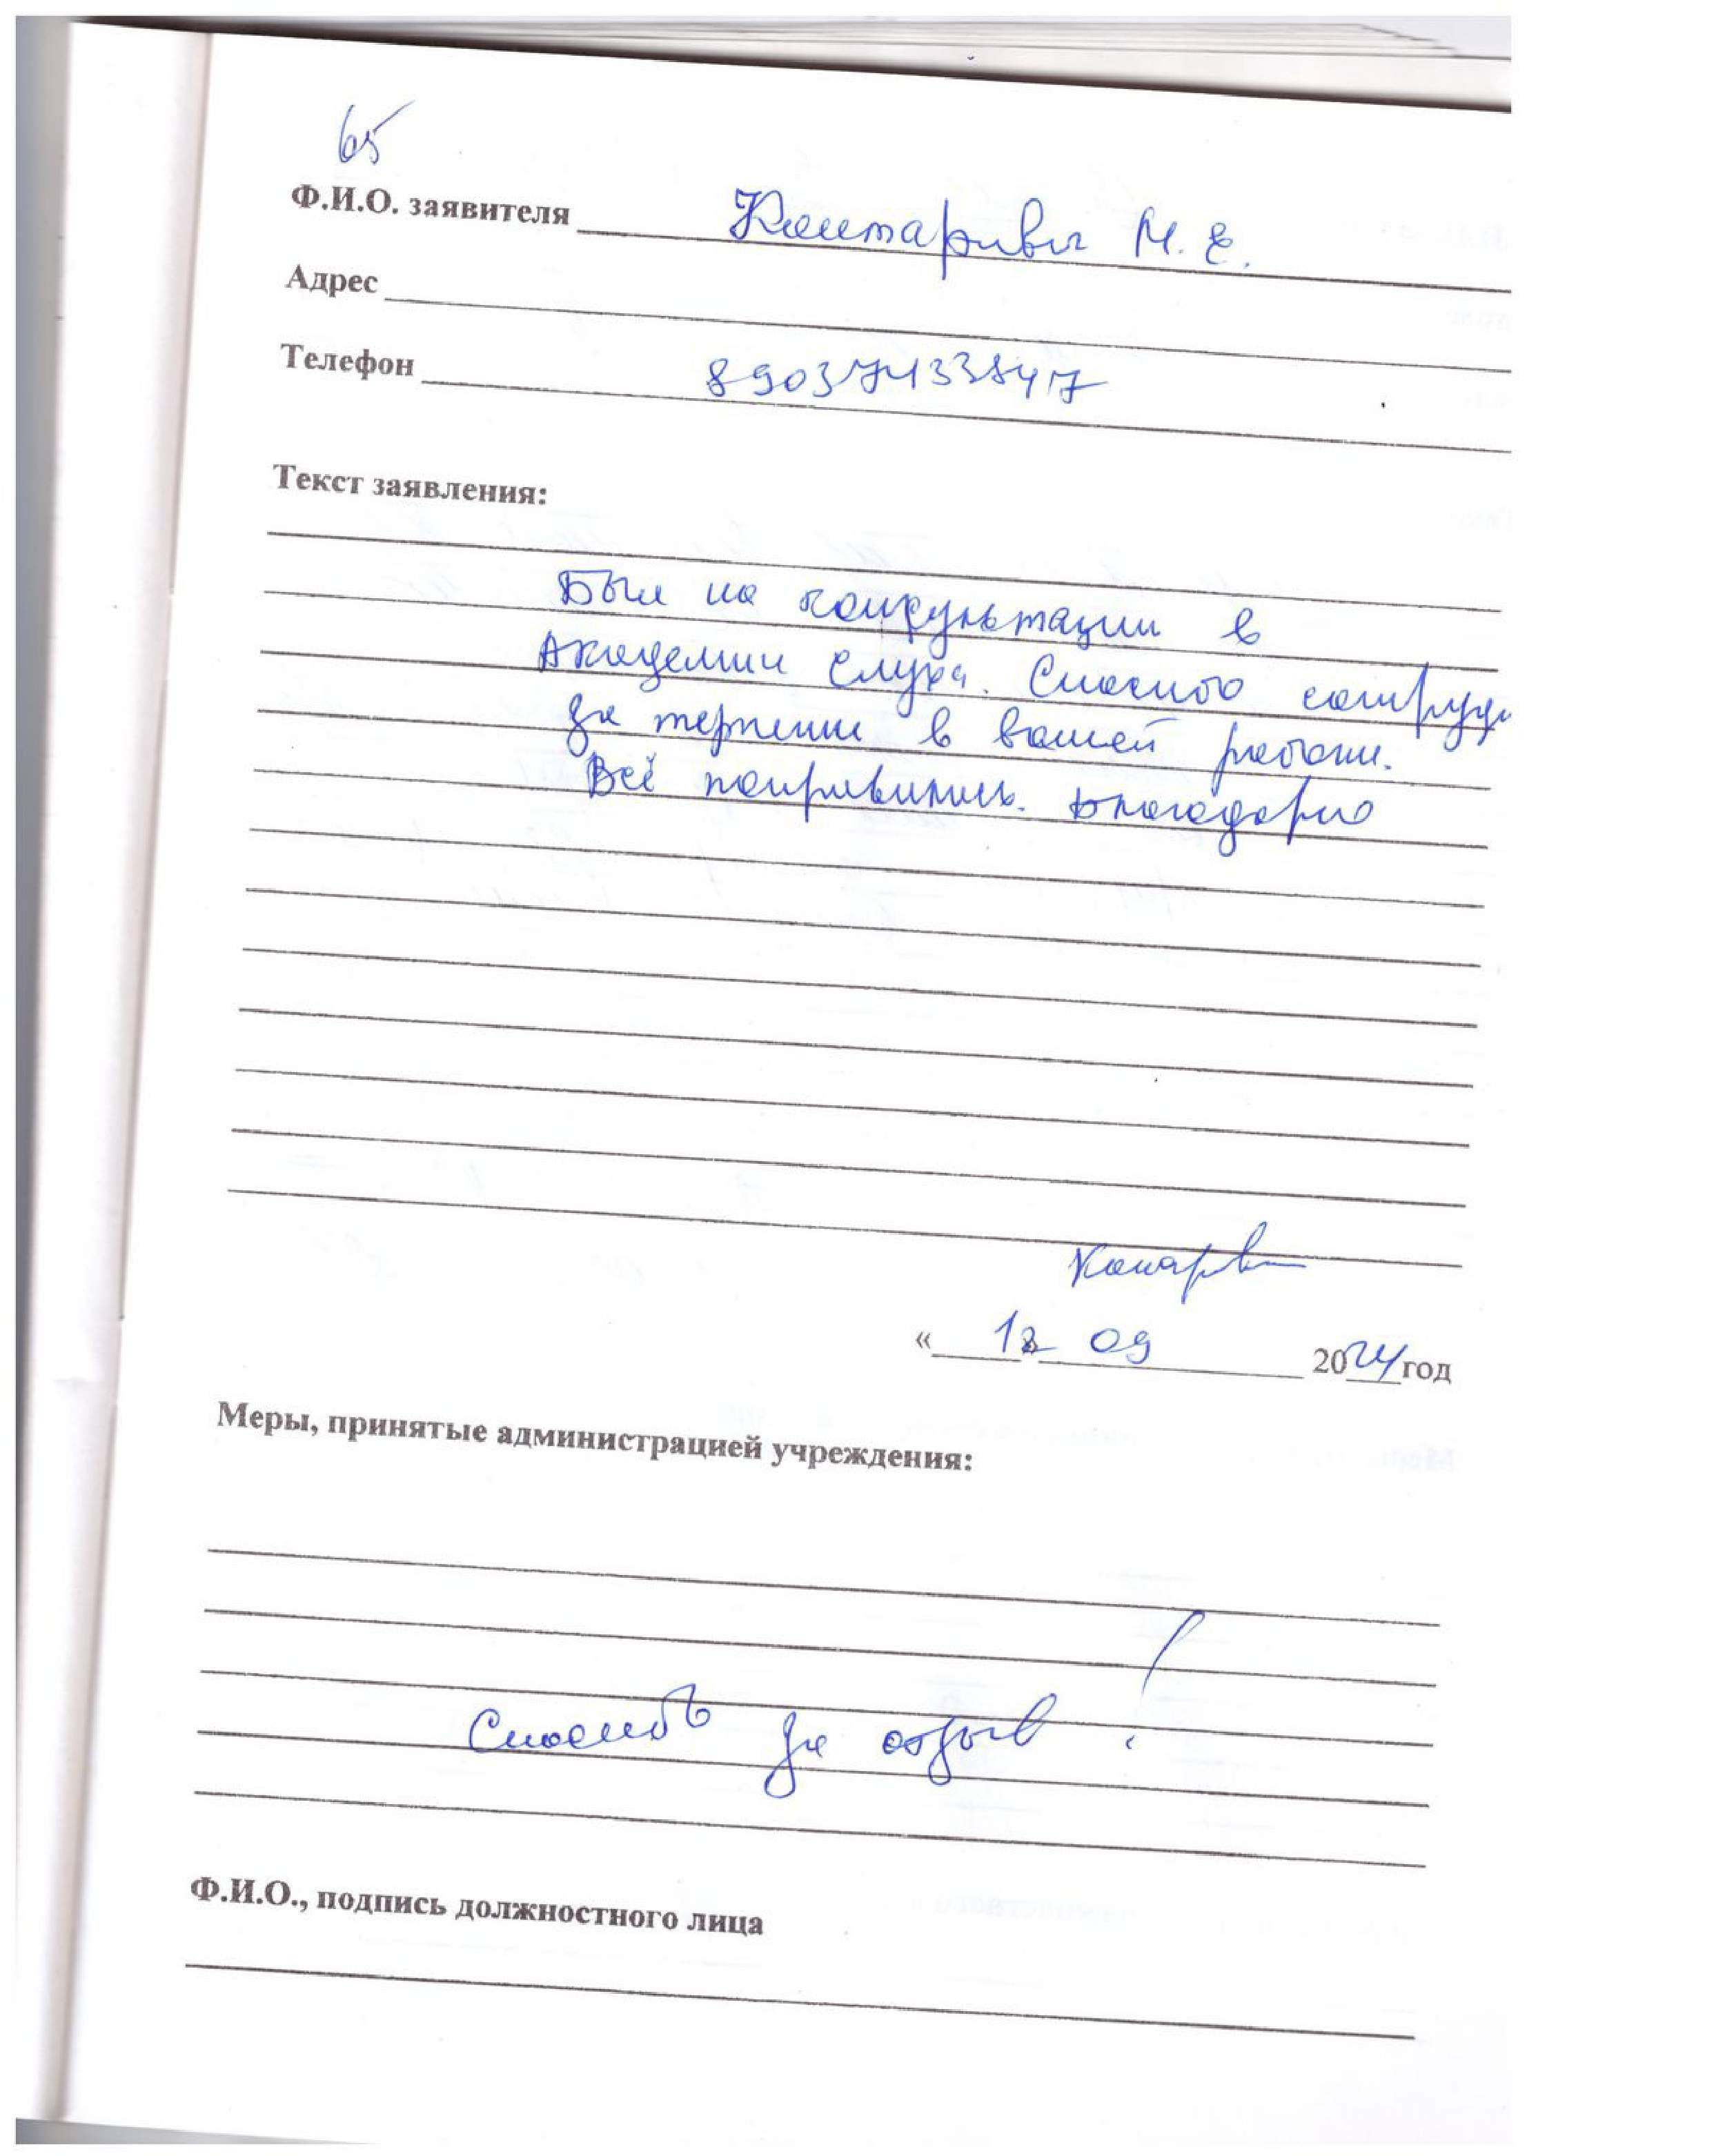 65
Ф.И.О. заявителя М. Е.
Адрес
Телефон
Текст заявления:
Был на консультации в
Академии Слуха. Спасибо сотруд
за терпение в вашей работе.
Всё понравилось. Благодарю
« 12 » 09 2024 год
Меры, принятые администрацией учреждения:
Спасибо за отзыв !
Ф.И.О., подпись должностного лица